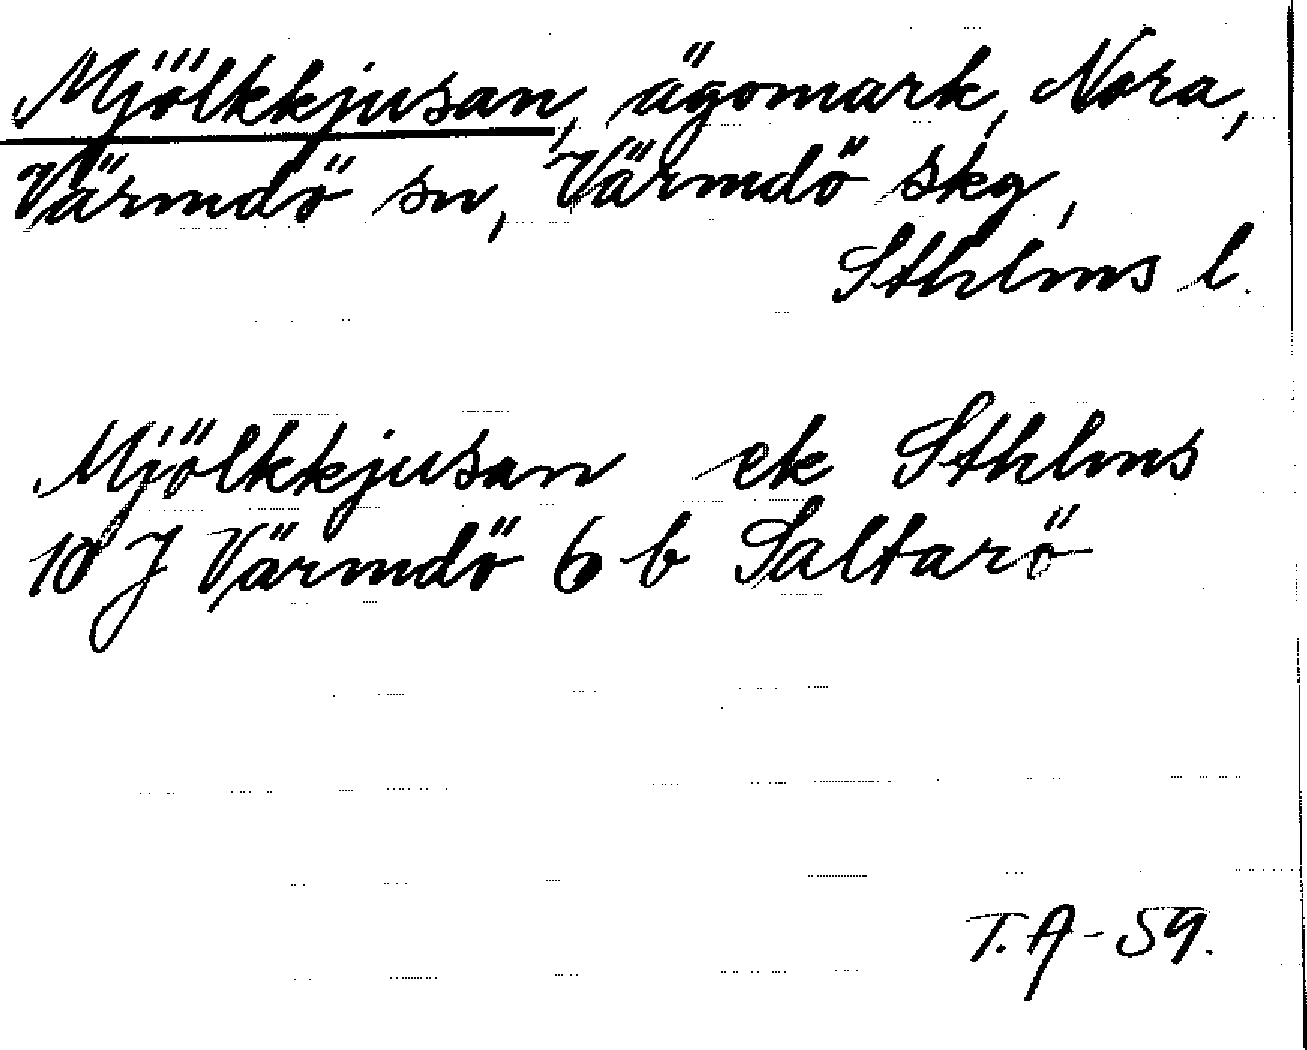 Mjölkkjusan, ägomark, Nora,
Värmdö sn, Värmdö skg,
Sthlms l.
Mjölkkjusan ek Sthlms
10 J Värmdö 6 b Saltarö
T. A - 59.